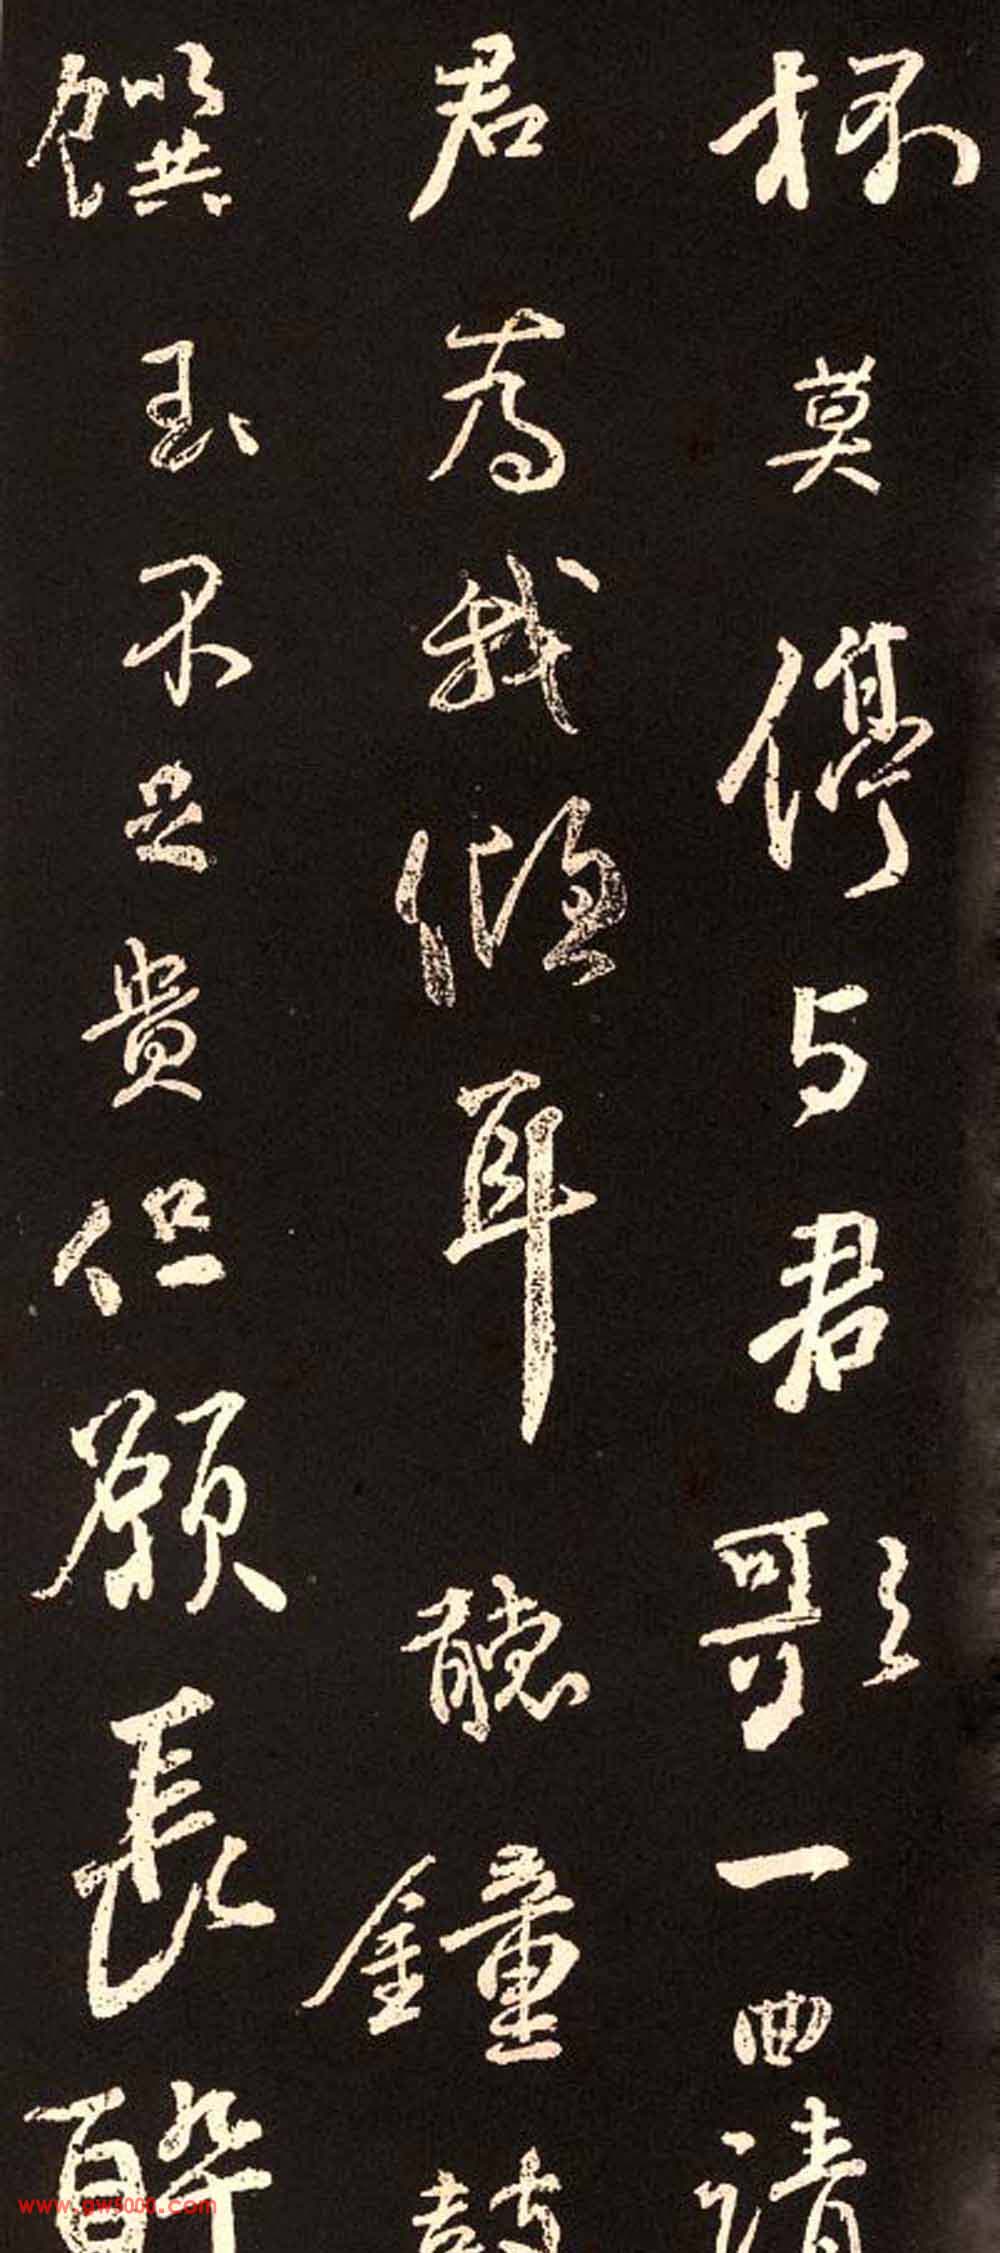 杯莫停与君歌一曲請
君為我傾耳聽鐘鼓
饌玉不足貴但願長醉
www.gw5000.com